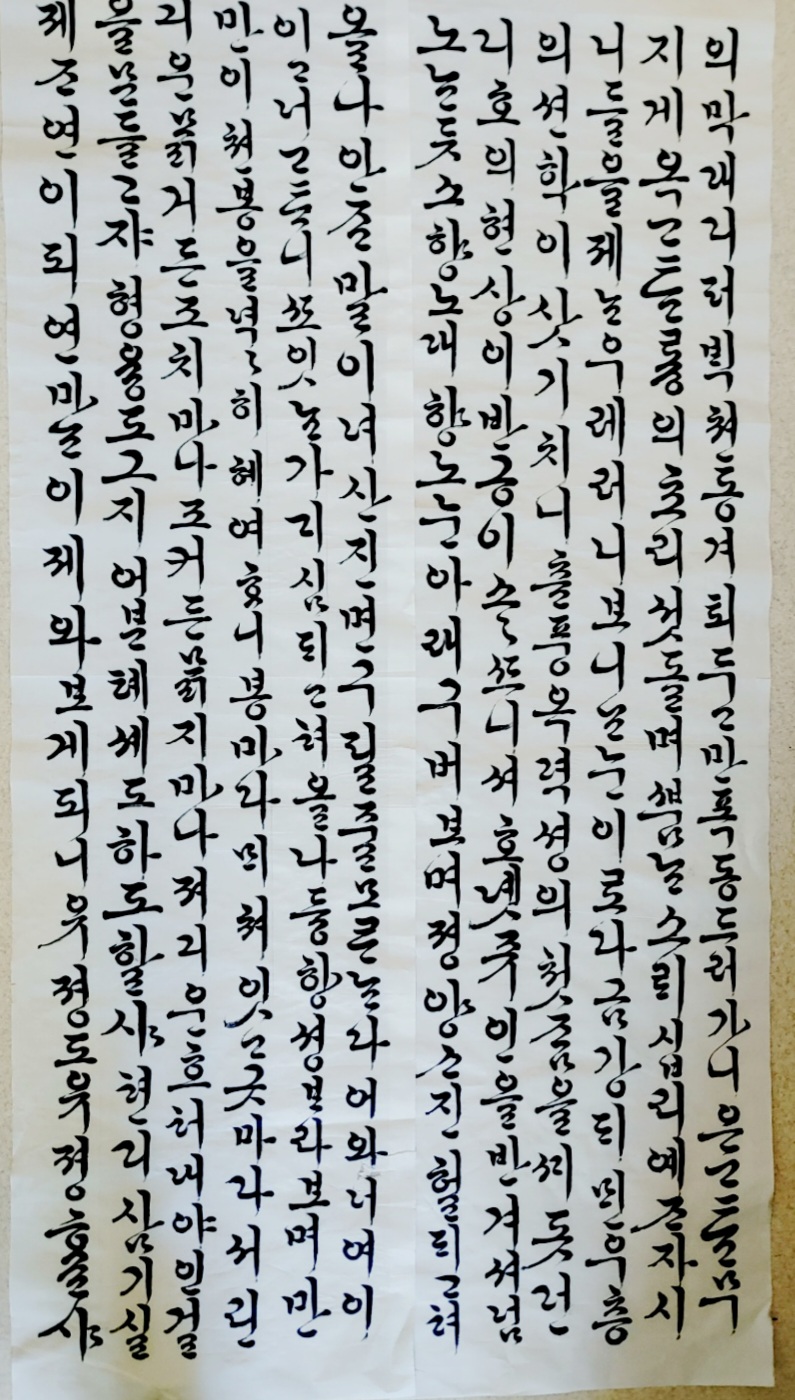 의막대디퍼빅쳔동겨ᄐᆡ두고만폭동드러가니은ᄀᆞᄐᆞᆫ무
지게옥ᄀᆞᄐᆞᆫ룡의초리섯돌며ᄲᅮᆷᄂᆞᆫ소ᄅᆡ십리예ᄌᆞ자시
니들을제ᄂᆞᆫ우레러니보니ᄂᆞᆫ눈이로다금강ᄃᆡᄆᆡᆫ우층
의션학이삿기치니츈풍옥뎍셩의첫ᄌᆞᆷ을ᄭᆡ돗던
디호의현샹이반공의소소ᄯᅳ니셔호녯쥬인을반겨셔넘
노ᄂᆞᆫ듯쇼향노대향노눈아래구버보며졍양ᄉᆞ진헐ᄃᆡ고텨
올나안ᄌᆞᆫ말이녀산진면구틸줄모ᄅᆞᄂᆞᆫ다어와너여이
이고너ᄀᆞᄐᆞ니ᄯᅩ잇ᄂᆞᆫ가ᄀᆡ심ᄃᆡ고텨올나듕향셩ᄇᆞ라보며만
만이쳔봉을녁녁히혜여ᄒᆞ니봉마다ᄆᆡ쳐잇고긋마다서린
긔운ᄆᆞᆰ거든조치마나조커든ᄆᆞᆰ지마나뎌긔운흐터내야인걸
을ᄆᆞᆫᄃᆞᆯ고쟈형용도그지어ᄇᆞᆫ톄셰도하도할샤쳔디삼기실
제ᄌᆞ연이되연마ᄂᆞᆫ이제와보게되니유졍도유졍ᄒᆞᆯ샤